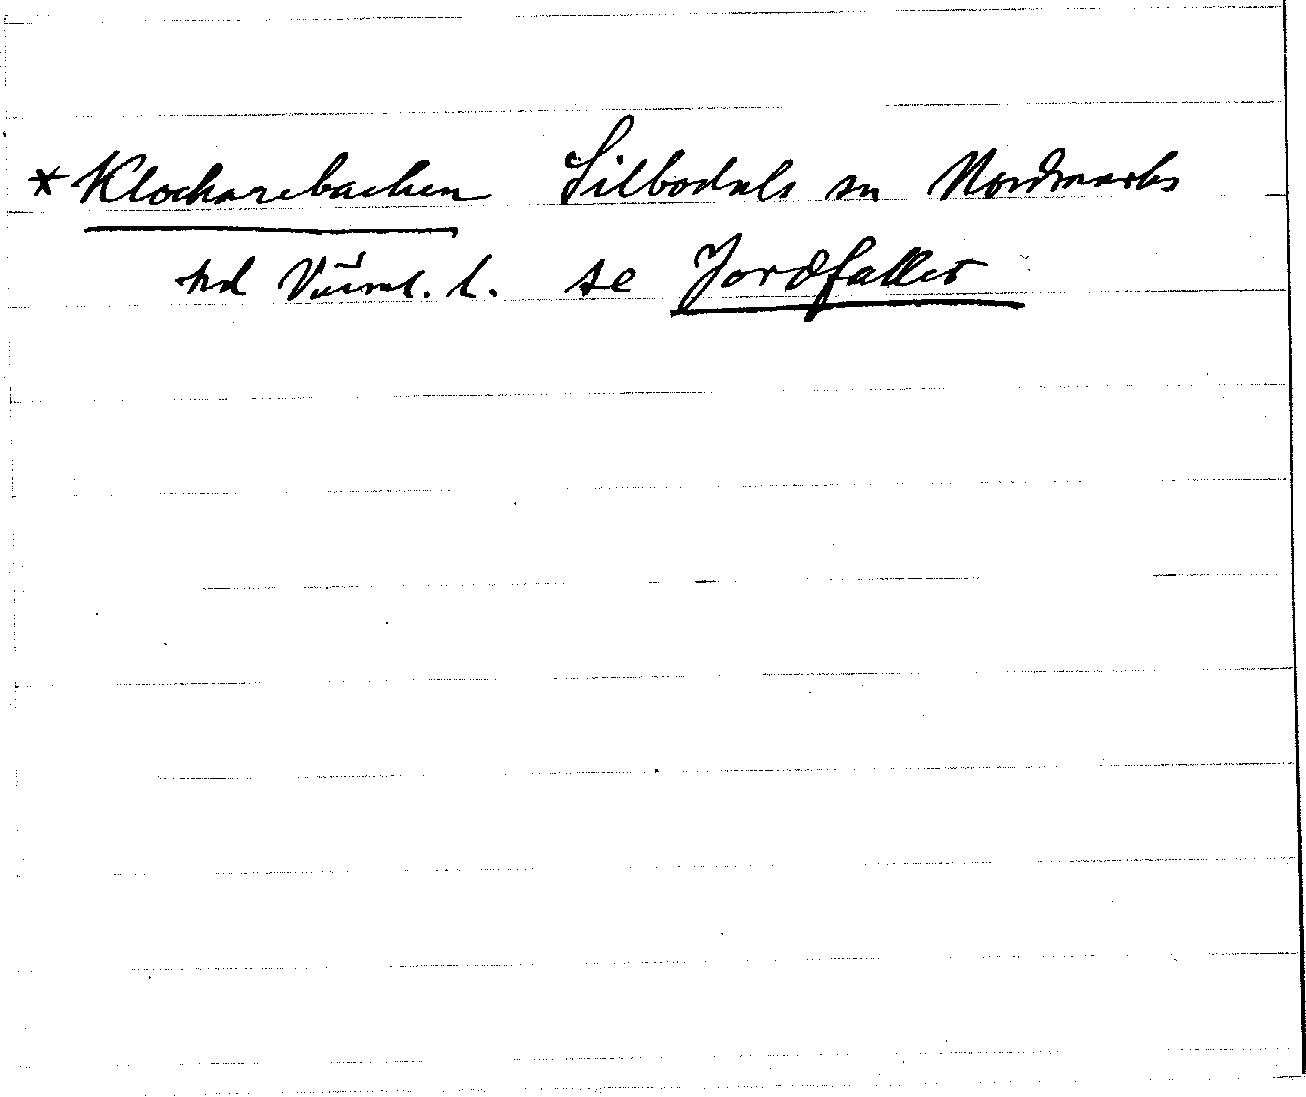 *Klockarebacken Silbodals sn Nordmarks
hd Värml. l. se Jordfallet